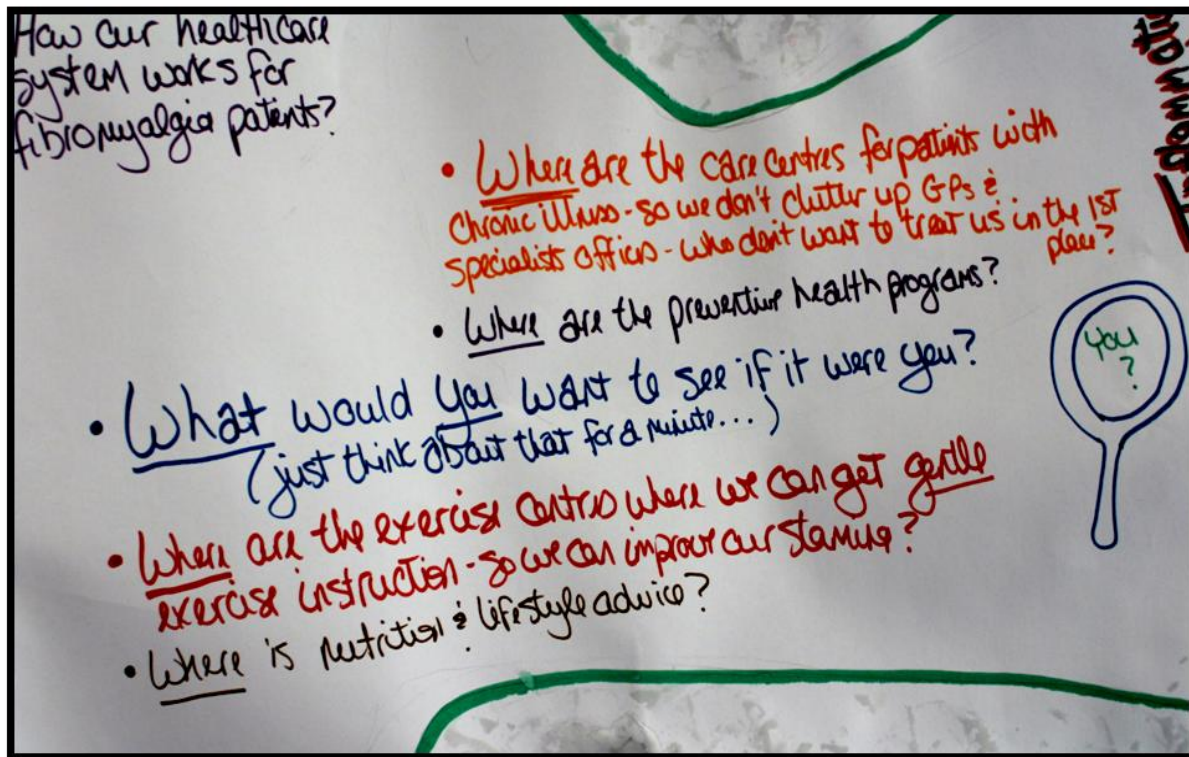 How our healthcare
system works for
fibromyalgia patients?
• Where are the care centres for patients with
chronic illness - so we don't clutter up GPs &
specialists offices - who don't want to treat us in the 1ST
place?
• Where are the preventive health programs?
• What would you want to see if it were you?
(just think about that for a minute...)
You
?
• Where are the exercise centres where we can get gentle
exercise instruction - so we can improve our stamina?
• Where is nutrition & lifestyle advice?